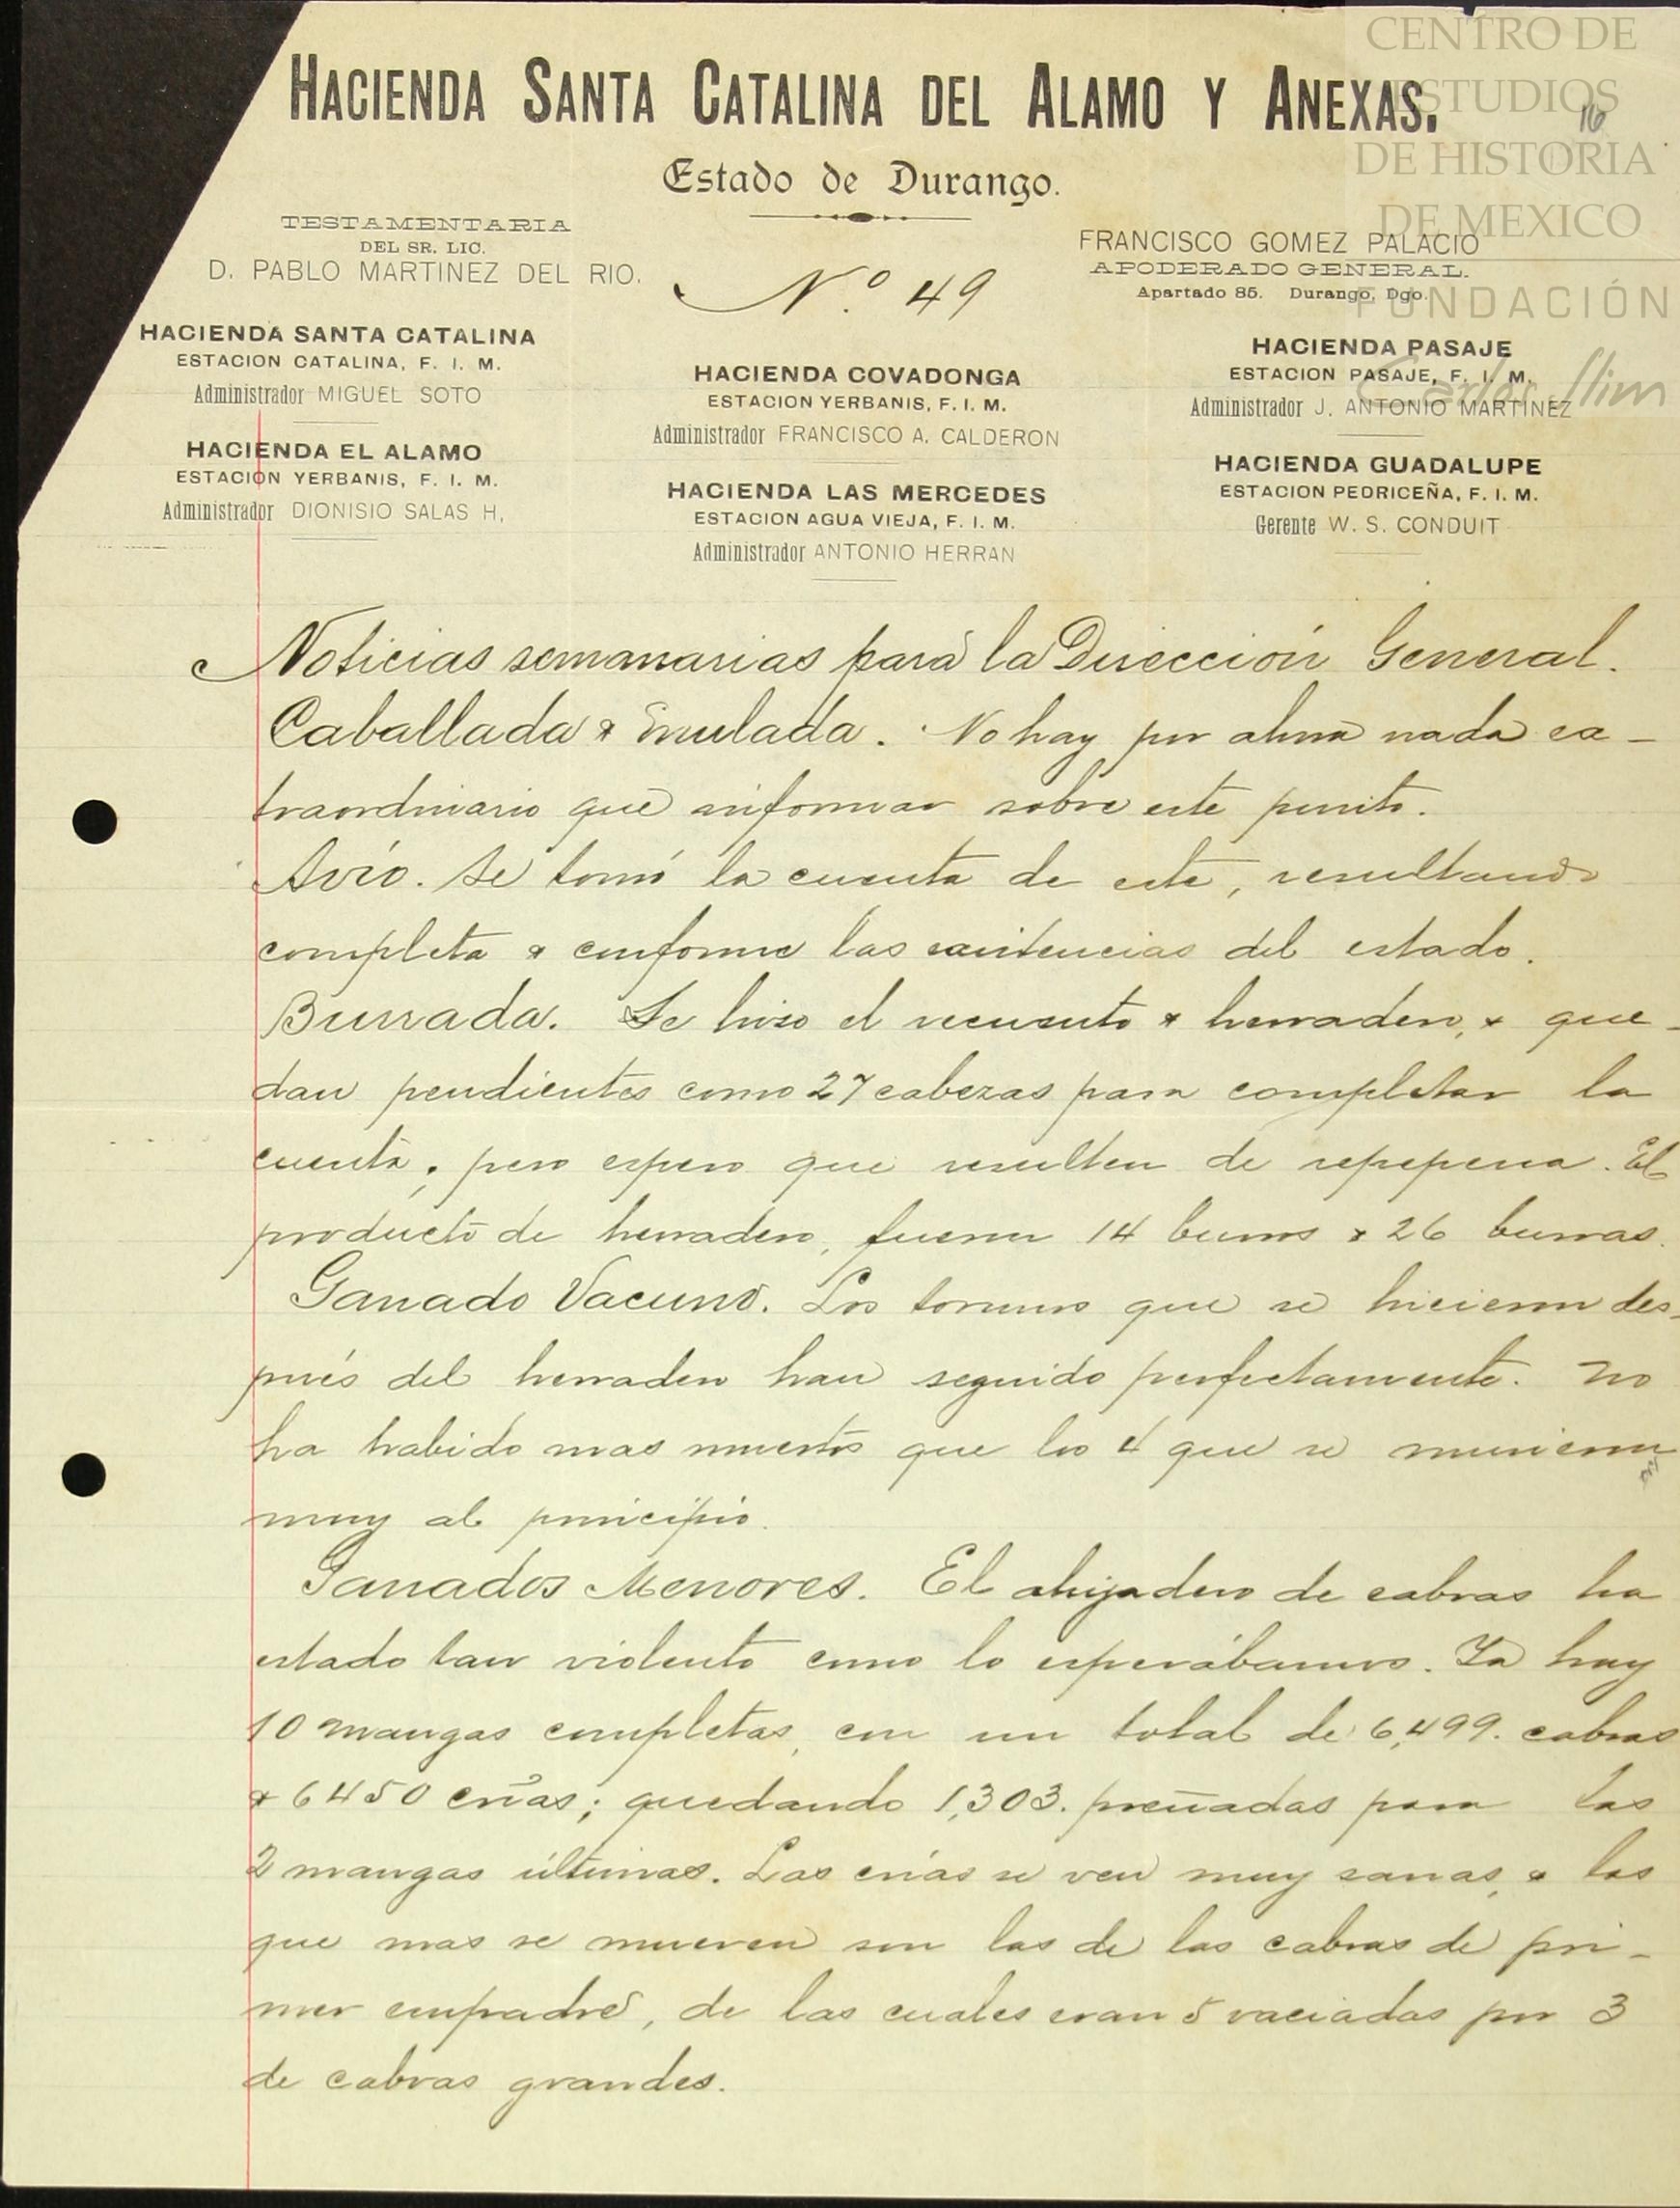 CENTRO DE
ESTUDIOS
DE HISTORIA
DE MEXICO
FUNDACIÓN
Carlos Slim
16
HACIENDA SANTA CATALINA DEL ALAMO Y ANEXAS.
Estado de Durango.
TESTAMENTARIA
DEL SR. LIC.
D. PABLO MARTINEZ DEL RIO.
N.º 49
FRANCISCO GOMEZ PALACIO
APODERADO GENERAL.
Apartado 85. Durango, Dgo.
HACIENDA SANTA CATALINA
ESTACION CATALINA, F. I. M.
Administrador MIGUEL SOTO
HACIENDA EL ALAMO
ESTACION YERBANIS, F. I. M.
Administrador DIONISIO SALAS H,
HACIENDA COVADONGA
ESTACION YERBANIS, F. I. M.
Administrador FRANCISCO A. CALDERON
HACIENDA LAS MERCEDES
ESTACION AGUA VIEJA, F. I. M.
Administrador ANTONIO HERRAN
HACIENDA PASAJE
ESTACION PASAJE, F. I. M.
Administrador J. ANTONIO MARTINEZ
HACIENDA GUADALUPE
ESTACION PEDRICEÑA, F. I. M.
Gerente W. S. CONDUIT
Noticias semanarias para la Dirección General.
Caballada & mulada. No hay por ahora nada ex-
traordinario que informar sobre este punto.
Avío. Se tomó la cuenta de este, resultando
completa & conforme las existencias del estado.
Burrada. Se hizo el recuento & herradero, & que-
dan pendientes como 27 cabezas para completar la
cuenta; pero espero que resulten de repepena. El
producto de herradero, fueron 14 burros & 26 burras.
Ganado Vacuno. Los torunos que se hicieron des-
pués del herradero han seguido perfectamente. No
ha habido mas muertos que los 4 que se murieron
muy al principio.
Ganados Menores. El ahijadero de cabras ha
estado tan violento como lo esperábamos. Ya hay
10 mangas completas, con un total de 6,499. cabras
& 6450 crías; quedando 1,303. preñadas para las
2 mangas últimas. Las crías se ven muy sanas, & las
que mas se mueren son las de las cabras de pri-
mer empadre, de las cuales eran 5 vaciadas por 3
de cabras grandes.